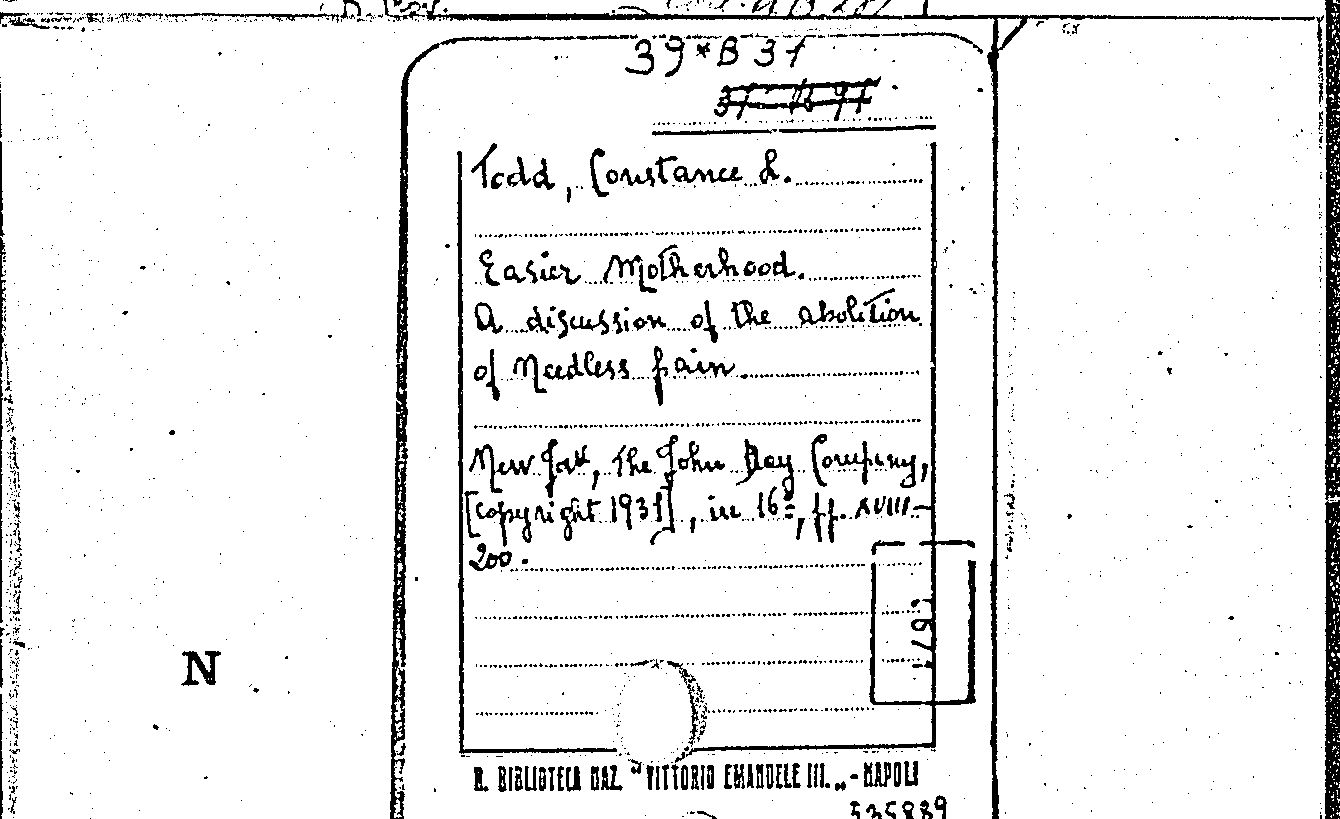 39*B 31
Todd, Constance L.
Easier Motherhood.
A discussion of the abolition
of Needless pain.
New York, The John Day Company,
[copyright 1931], in 16°, pp. XVIII-
200.
N
R. BIBLIOTECA NAZ. "VITTORIO EMANUELE III." - NAPOLI
535889